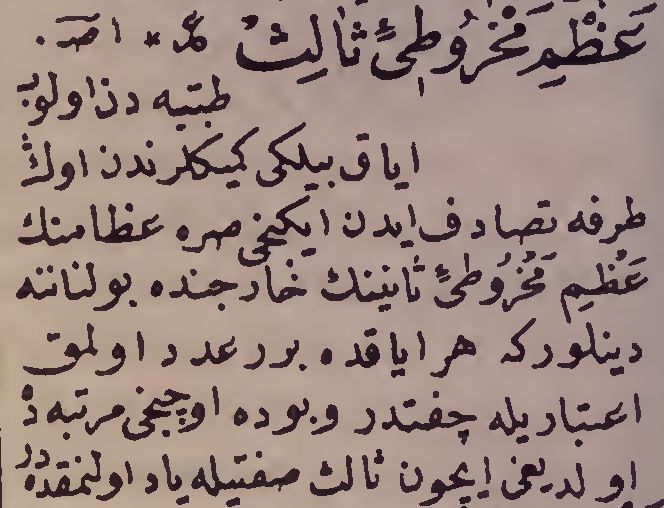 عُظَيْمِ مَخْرُوطِیِّ ثَالِثْ
طبيه دن اولوب
اياق بيلكى كميكلرندن اوڭ
طرفه تصادف ايدن ايكنجى صره عظامنك
عُظَيْمِ مَخْرُوطِیِّ ثانينك خارجنده بولناننه
دينلور كه هر اياقده برر عدد اولمق
اعتباريله چفتدر وبوده اوچنجى مرتبه ده
اولديغى ايچون ثالث صفتيله ياد اولنمقده در